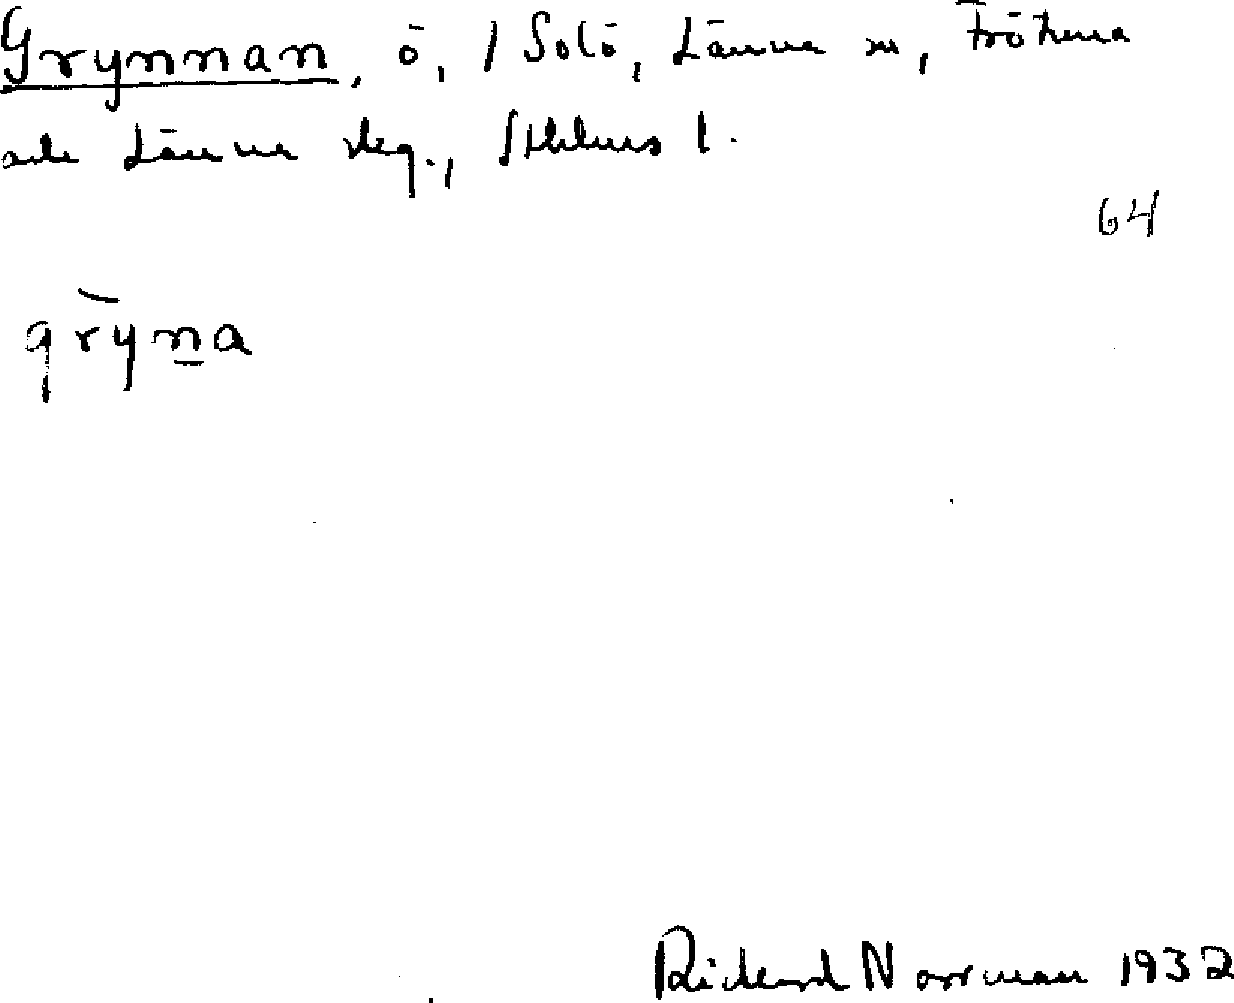 Grynnan, ö, / Solö, Länna sn, Frötuna
och Länna skg., Sthlms l.
64
gryna
Rickard Norrman 1932